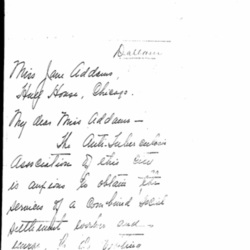 Miss Jane Addams,
Hull House, Chicago.
My dear Miss Addams—
The Anti-Tuberculosis
Association of this
is anxious to obtain the
services of a combined social
settlement worker and